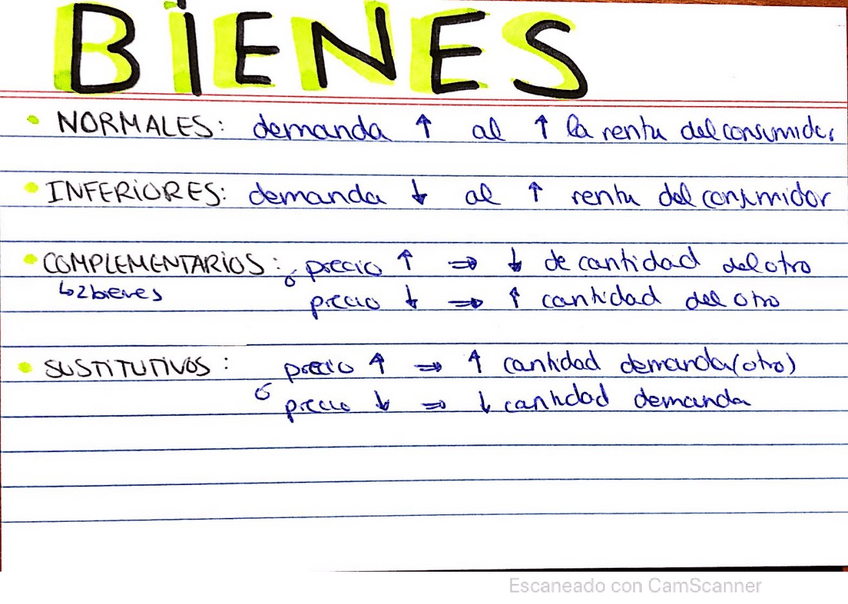 BIENES
• NORMALES: demanda ↑ al ↑ la renta del consumidor
• INFERIORES: demanda ↓ al ↑ renta del consumidor
• COMPLEMENTARIOS: precio ↑ ⇒ ↓ de cantidad del otro
↳ 2 bienes ó precio ↓ ⇒ ↑ cantidad del otro
• SUSTITUTIVOS: precio ↑ ⇒ ↑ cantidad demanda (otro)
ó precio ↓ ⇒ ↓ cantidad demanda
Escaneado con CamScanner